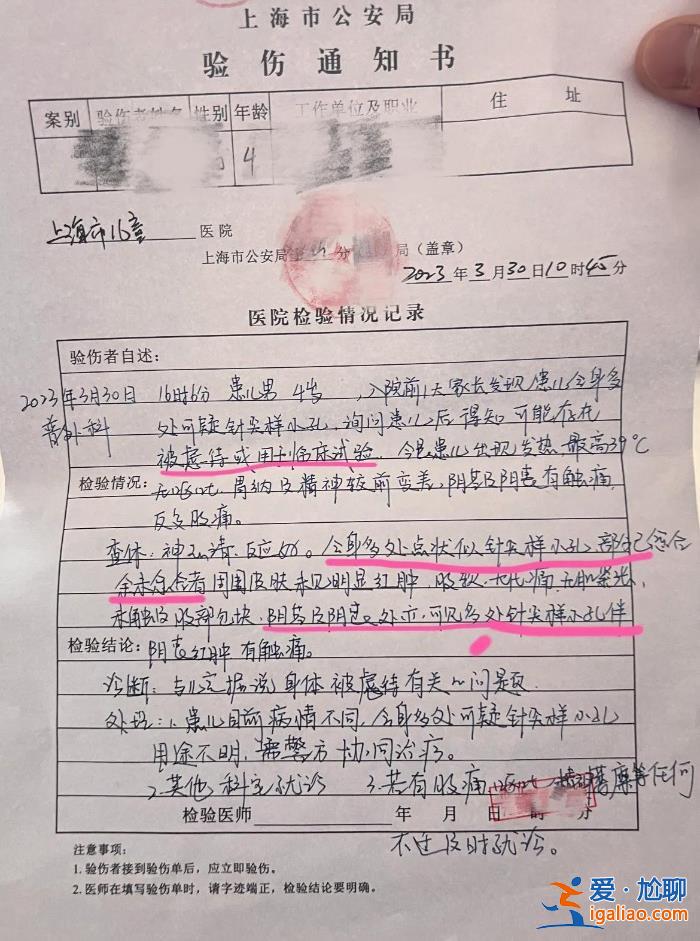 上海市公安局
验伤通知书
案别 验伤者姓名 性别 年龄 工作单位及职业 住址
4
上海市16童 医院
上海市公安局 分 局(盖章)
2023年3月30日10时45分
医院检验情况记录
验伤者自述:
2023年3月30日 16时6分 患儿男 4岁 ,入院前1天家长发现患儿全身多
普外科 处可疑针尖样小孔,询问患儿后得知可能存在
被虐待或用于临床试验。今患儿出现发热最高39℃
检验情况:
无呕吐,胃纳及精神较前变差,阴茎及阴囊有触痛,
反复腹痛。
查体:神志清,反应好。全身多处点状似针尖样小孔部分已愈合
余未愈合者周围皮肤未见明显红肿 腹软,无压痛
未触及腹部包块,阴茎及阴囊处亦可见多处针尖样小孔伴
检验结论: 阴囊红肿 有触痛。
诊断:与 据说身体被虐待有关的问题
处理:1.患儿目前病情不同,全身多处可疑针尖样小孔
用途不明,需警方协同治疗。
2.其他科室就诊 3.若有腹痛 呕吐 等任何
检验医师 年 月 日 时 分
不适及时就诊。
注意事项:
1.验伤者接到验伤单后,应立即验伤。
2.医师在填写验伤单时,请字迹端正,检验结论要明确。
爱·尬聊
igaliao.com